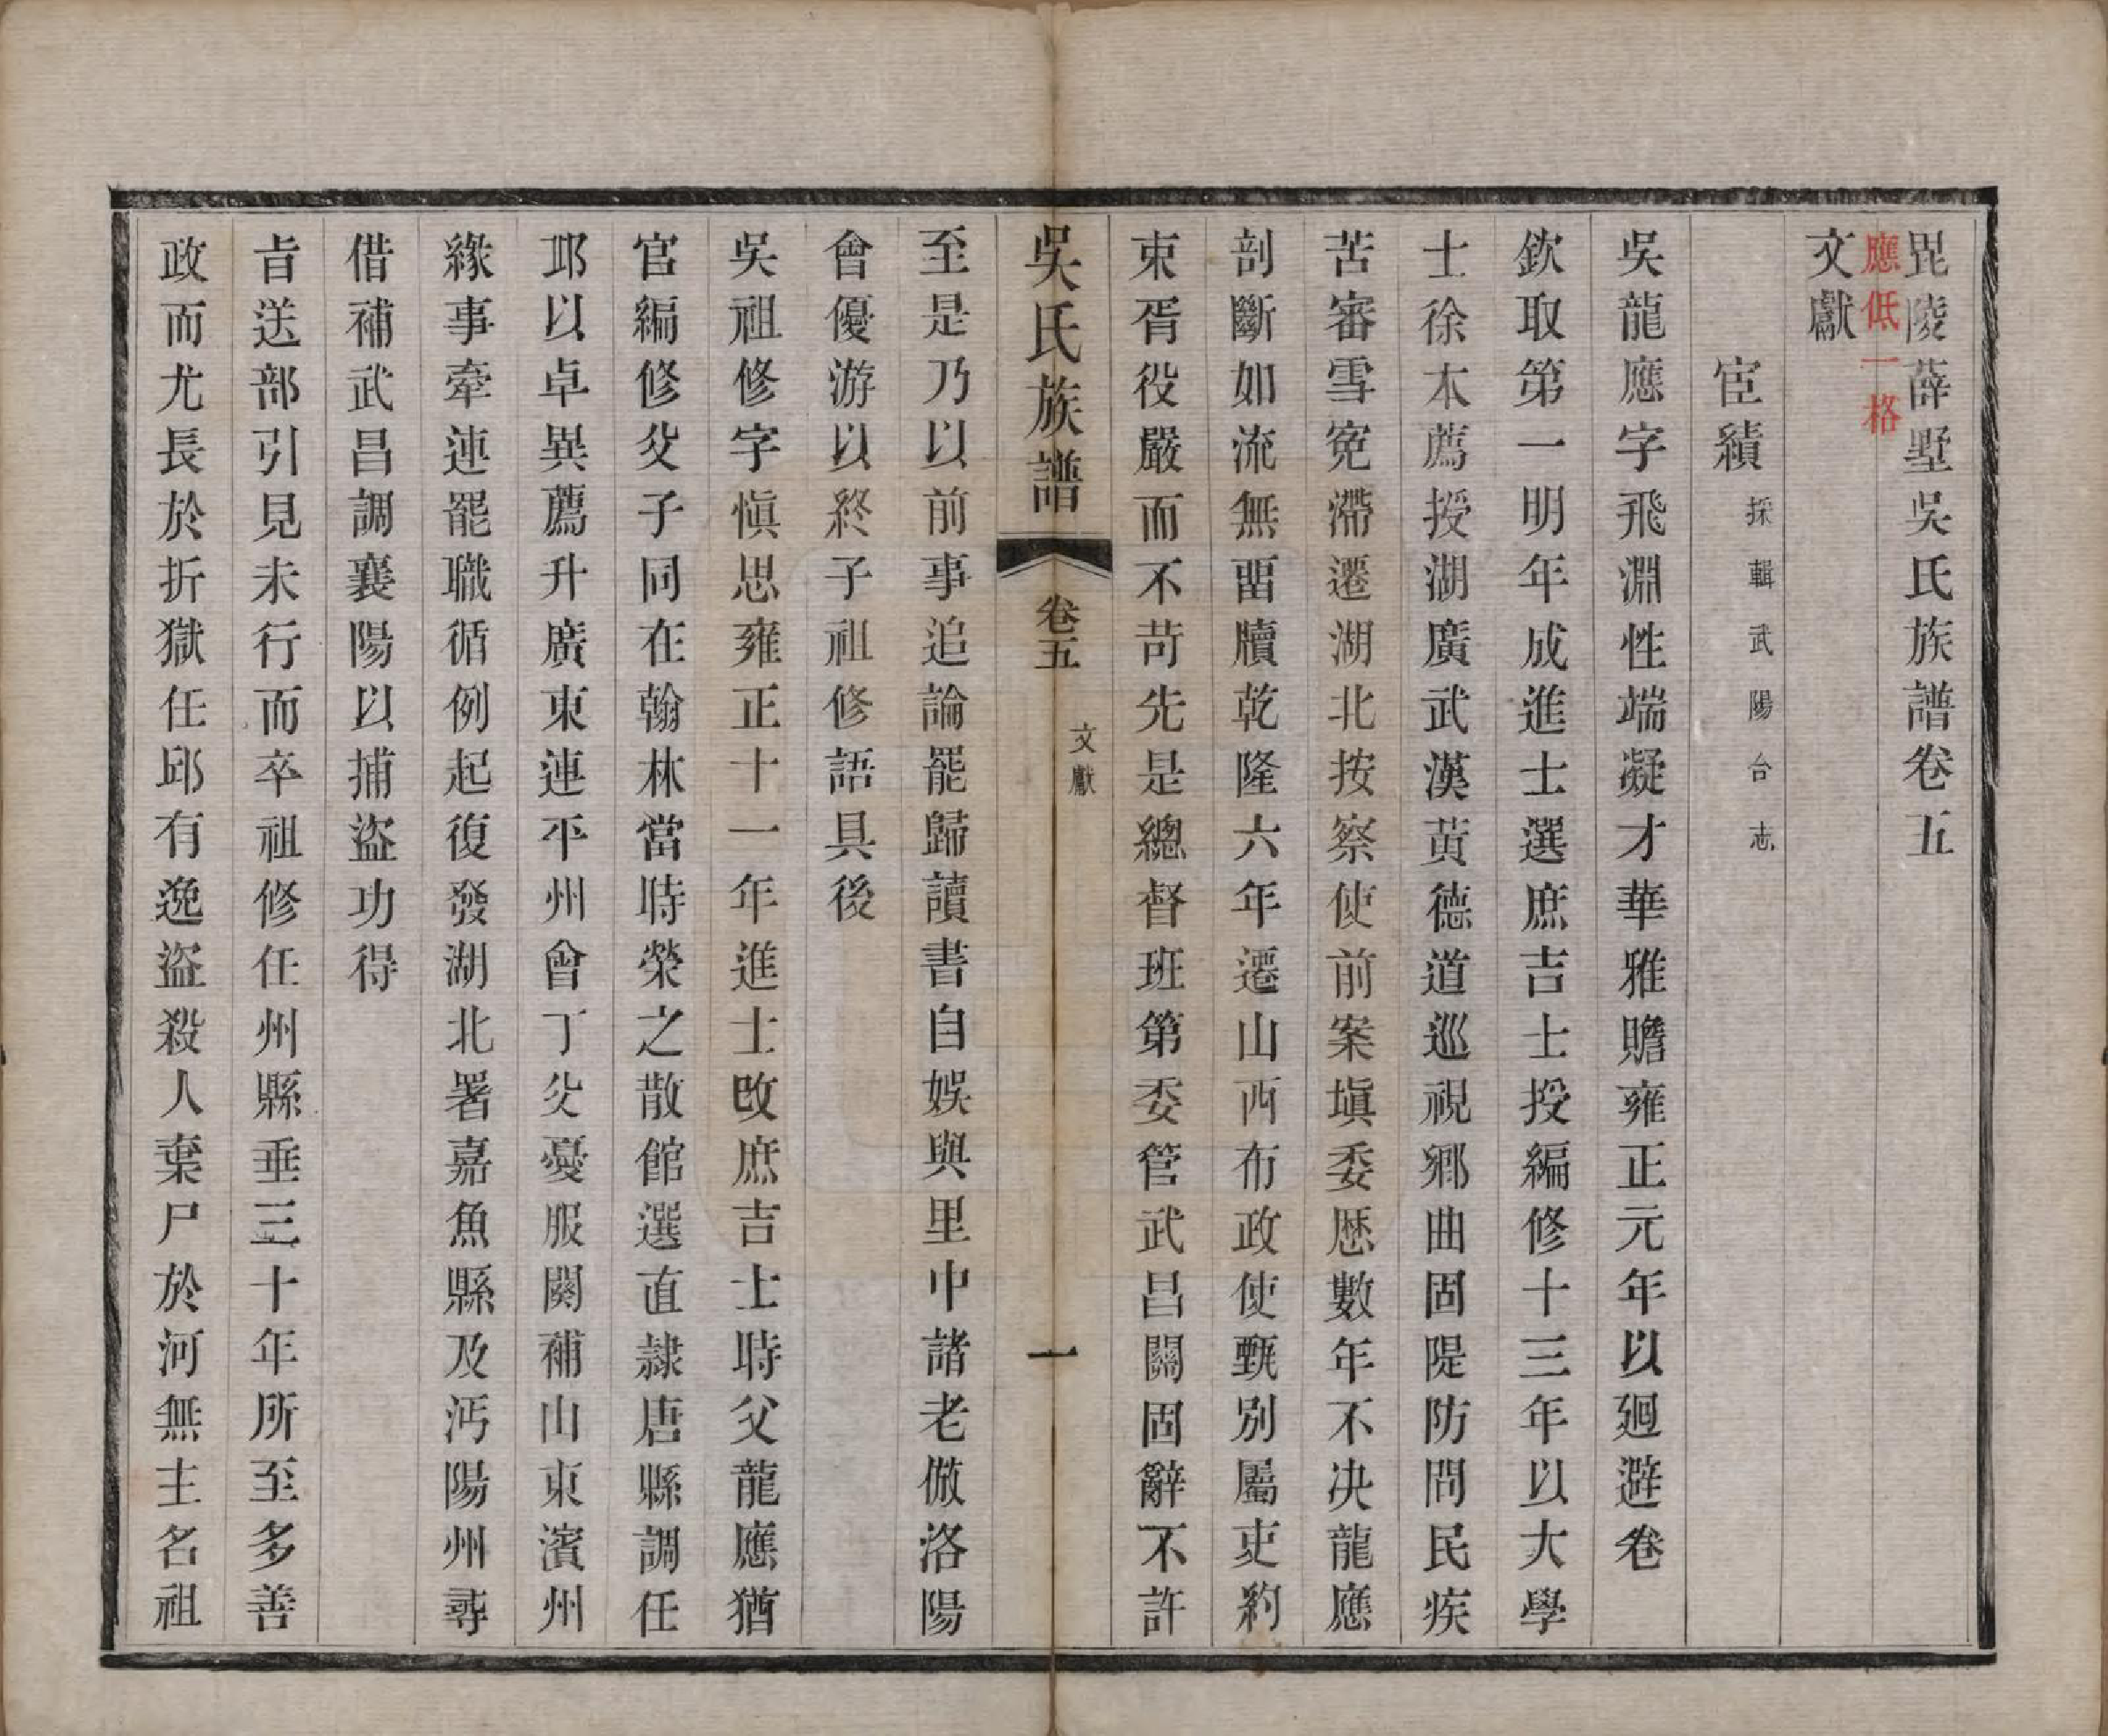 毘陵薛墅吳氏族譜卷五
應低一格
文獻
宦績 採輯武陽合志
吳龍應字飛淵性端凝才華雅贍雍正元年以廻避卷
欽取第一明年成進士選庶吉士授編修十三年以大學
士徐本薦授湖廣武漢黃德道巡視鄉曲固隄防問民疾
苦審雪寃滯遷湖北按察使前案塡委歷數年不決龍應
剖斷如流無畱牘乾隆六年遷山西布政使甄別屬吏約
束胥役嚴而不苛先是總督班第委管武昌關固辭不許
吳氏族譜 卷五 文獻 一
至是乃以前事追論罷歸讀書自娛與里中諸老倣洛陽
會優游以終子祖修語具後
吳祖修字愼思雍正十一年進士改庶吉士時父龍應猶
官編修父子同在翰林當時榮之散館選直隸唐縣調任
邛以卓異薦升廣東連平州曾丁父憂服闋補山東濱州
緣事牽連罷職循例起復發湖北署嘉魚縣及沔陽州尋
借補武昌調襄陽以捕盜功得
旨送部引見未行而卒祖修任州縣垂三十年所至多善
政而尤長於折獄任邱有逸盜殺人棄尸於河無主名祖